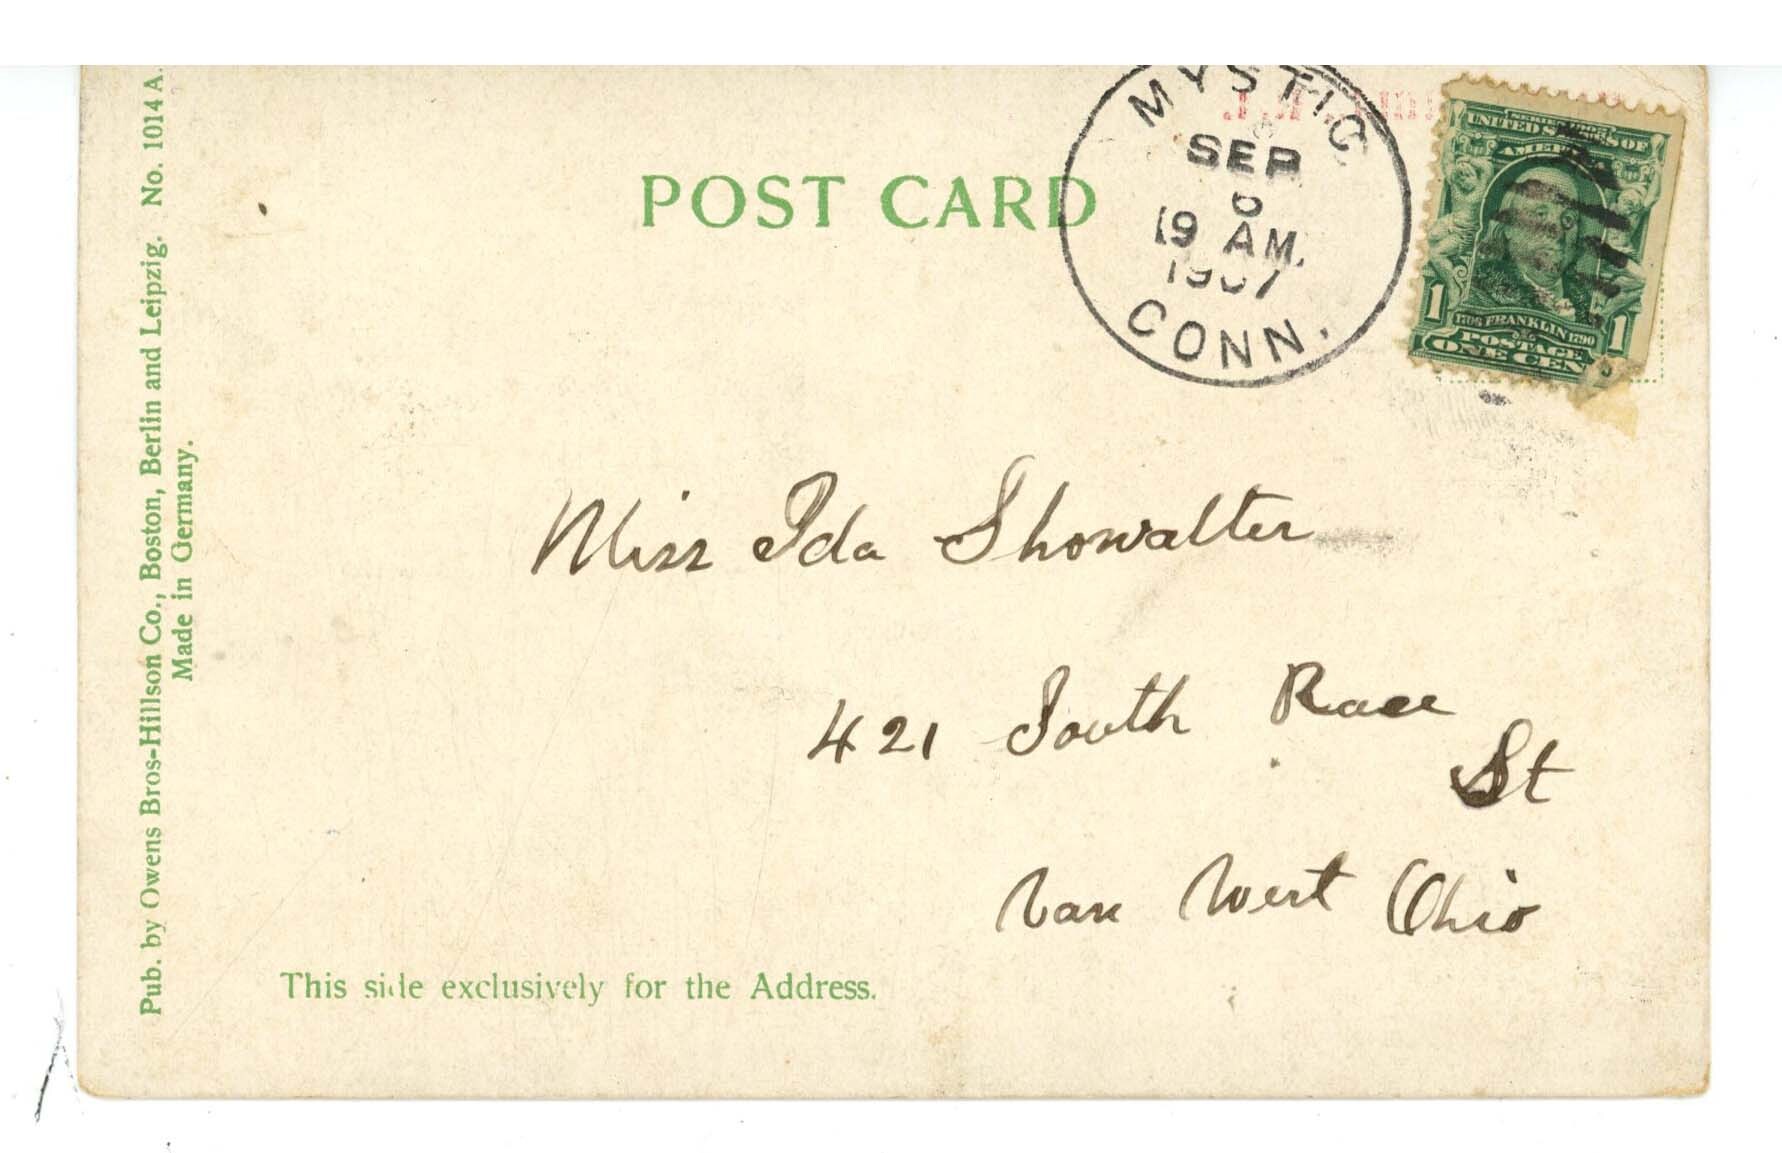 Pub. by Owens Bros-Hillson Co., Boston, Berlin and Leipzig. No. 1014 A.
Made in Germany.
POST CARD
MYSTIC
SEP
19 AM.
1907
CONN.
SERIES 1902
UNITED STATES OF
AMERICA
1 1
1706 FRANKLIN 1790
POSTAGE
ONE CENT
Miss Ida Showalter
421 South Race
St
Van Wert Ohio
This side exclusively for the Address.